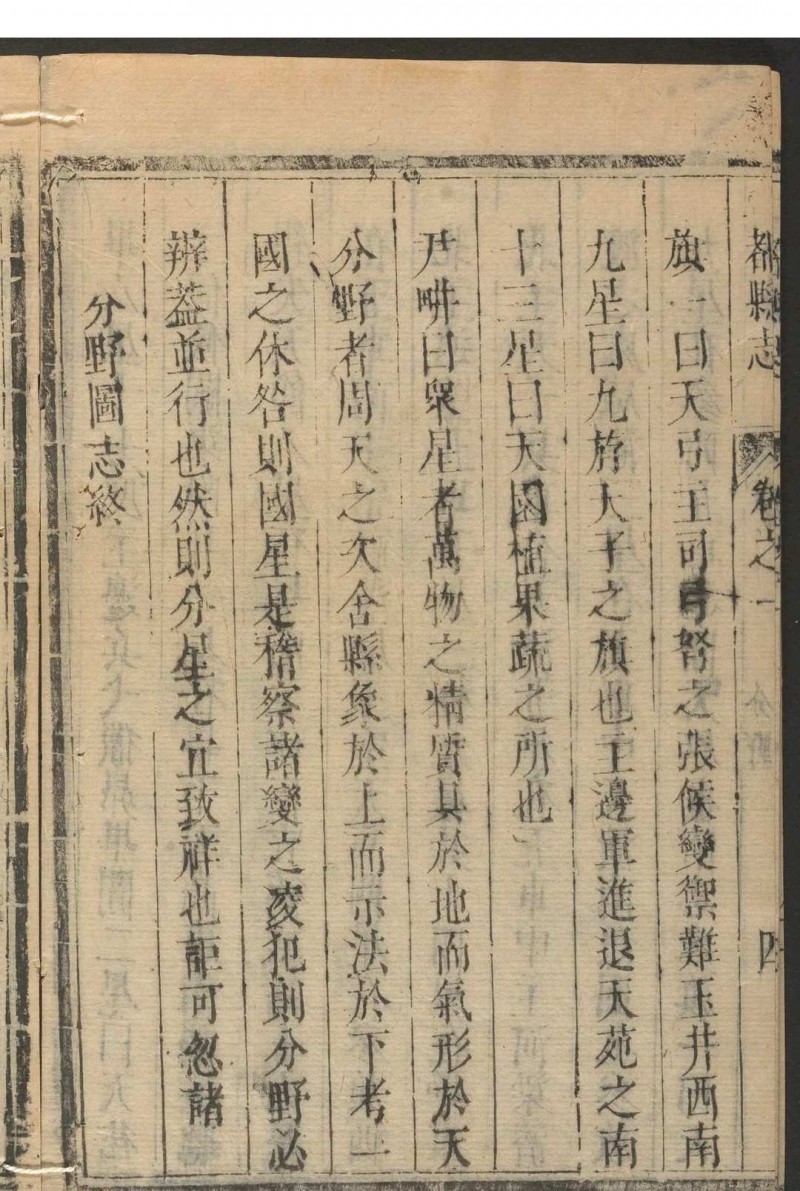 都縣志 卷之一 分野 四
旗一曰天弓主司弓弩之張候變禦難玉井西南
九星曰九斿天子之旗也主邊軍進退天苑之南
十三星曰天園植果蔬之所也
尹畊曰眾星者萬物之精質具於地而氣形於天
分野者周天之次舍縣象於上而示法於下考一
國之休咎則國星是稽察諸變之凌犯則分野必
辨蓋並行也然則分星之宜致祥也詎可忽諸
分野圖志終